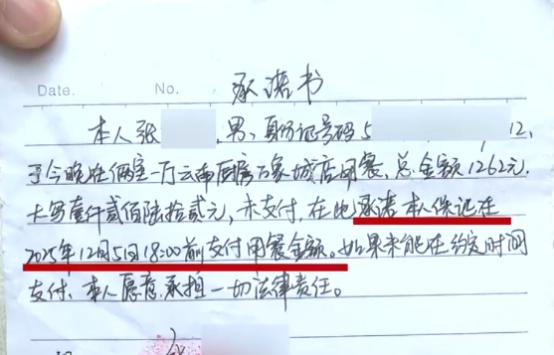 Date. No. 承诺书
本人张 ,男、身份证号码5 12,
于今晚在俩室一厅云南厨房万象城店用餐、总金额1262元.
大写壹仟贰佰陆拾贰元,未支付,在此承诺本人保证在
2025年12月5日18:00前支付用餐金额。如果未能在约定时间
支付、本人愿意承担一切法律责任。